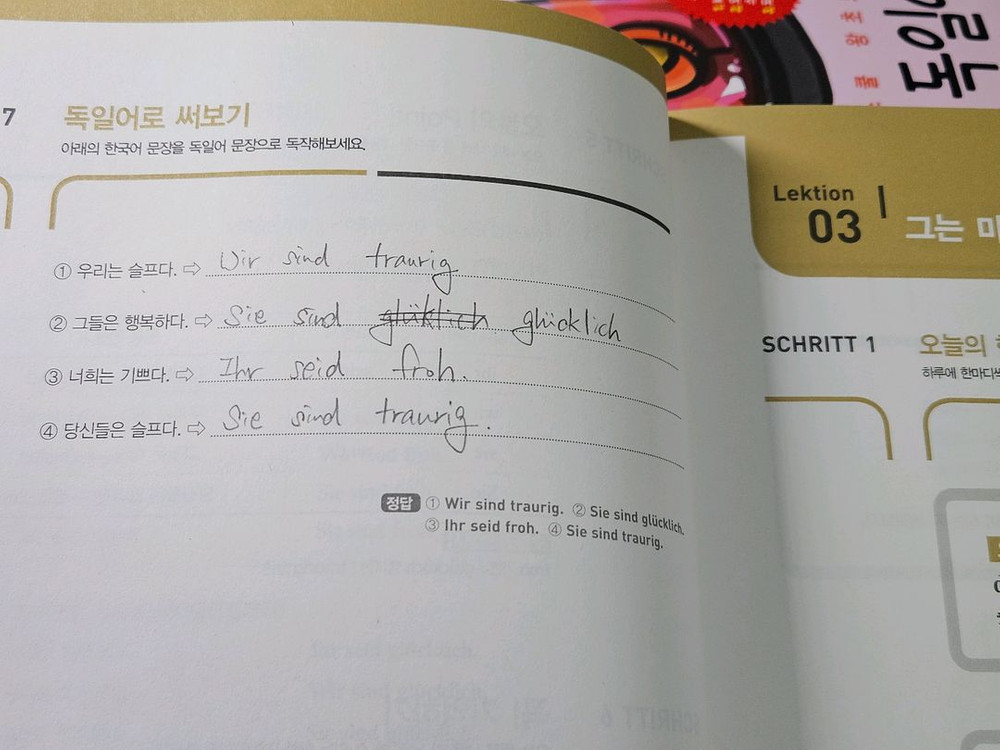 독일어
7 독일어로 써보기
아래의 한국어 문장을 독일어 문장으로 독작해보세요.
① 우리는 슬프다. ⇨ Wir sind traurig
② 그들은 행복하다. ⇨ Sie sind glüklich glücklich
③ 너희는 기쁘다. ⇨ Ihr seid froh.
④ 당신들은 슬프다. ⇨ Sie sind traurig.
정답 ① Wir sind traurig. ② Sie sind glücklich.
③ Ihr seid froh. ④ Sie sind traurig.
Lektion
03
그는
SCHRITT 1
오늘의
하루에 한마디씩